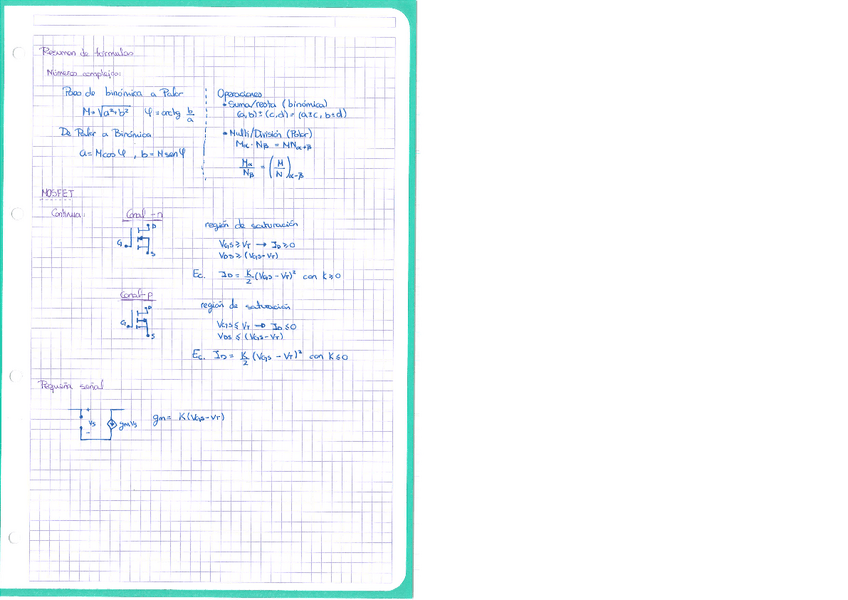 Resumen de fórmulas
Números complejos:
Paso de binómica a Polar
M = √a²+b²   φ = arctg b/a
De Polar a Binómica
a = M cos φ , b = M sen φ
Operaciones
• Suma/resta (binómica)
(a,b) ± (c,d) = (a±c, b±d)
• Multi/División (Polar)
Mα · Nβ = MNα+β
Mα/Nβ = (M/N)α-β
MOSFET
Continua:
Canal-n
D
G
S
región de saturación
VGS ≥ VT → ID ≥ 0
VDS ≥ (VGS - VT)
Ec. ID = K/2 (VGS - VT)² con K ≥ 0
Canal-p
D
G
S
región de saturación
VGS ≤ VT → ID ≤ 0
VDS ≤ (VGS - VT)
Ec. ID = K/2 (VGS - VT)² con K ≤ 0
Pequeña señal
+
VS   gmVS   gm = K(VGS - VT)
-